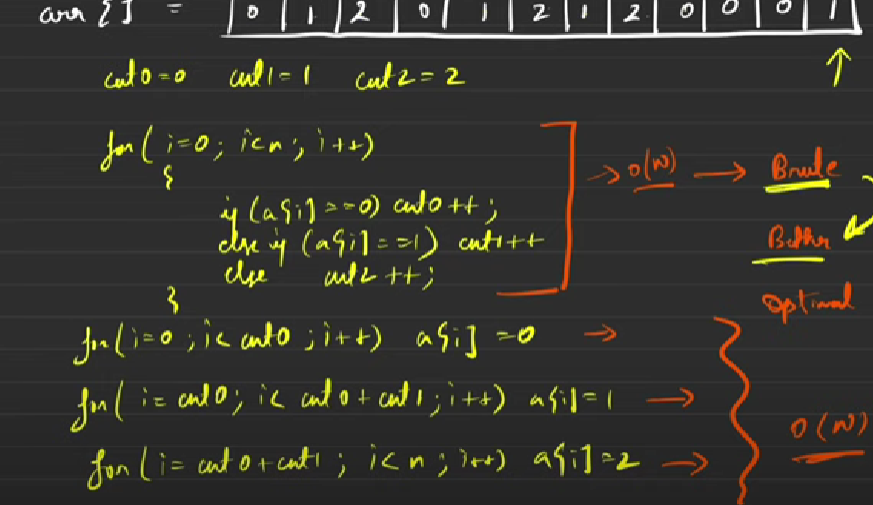 arr [] = 0 1 2 0 1 2 1 2 0 0 0 1
cnt0=0 cnt1=1 cnt2=2
for( i=0; i<n; i++)
{
if (a[i]==0) cnt0++;
else if (a[i]==1) cnt1++
else cnt2++;
}
→ O(N) → Brute
Better
Optimal
for(i=0; i< cnt0; i++) a[i]=0 →
for( i=cnt0; i< cnt0+cnt1; i++) a[i]=1 →
for(i=cnt0+cnt1; i<n; i++) a[i]=2 →
O(N)